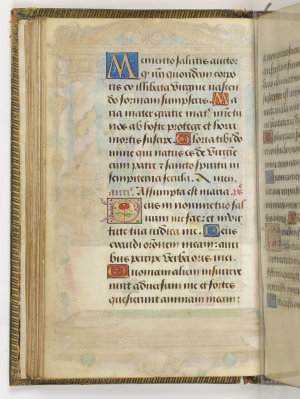 Memento salutis auctor
q̃ nr̃i quondam corpo
ris ex illibata virgine nascen
do formam sumpseris. Ma
ria mater gratie mat̃ mie tu
nos ab hoste protege et hora
mortis suscipe. Gloria tibi do
mine qui natus es de virgie
cum patre et sancto spiritu in
sempiterna secula. Amen.
anã. Assumpta est maria. ps̃
Deus in nomine tuo sal
uum me fac: et in vir
tute tua iudica me. Deus
exaudi orationem meam: auri
bus percipe verba oris mei.
Quoniam alieni insurrexe
runt aduersum me et fortes
quesierunt animam meam: